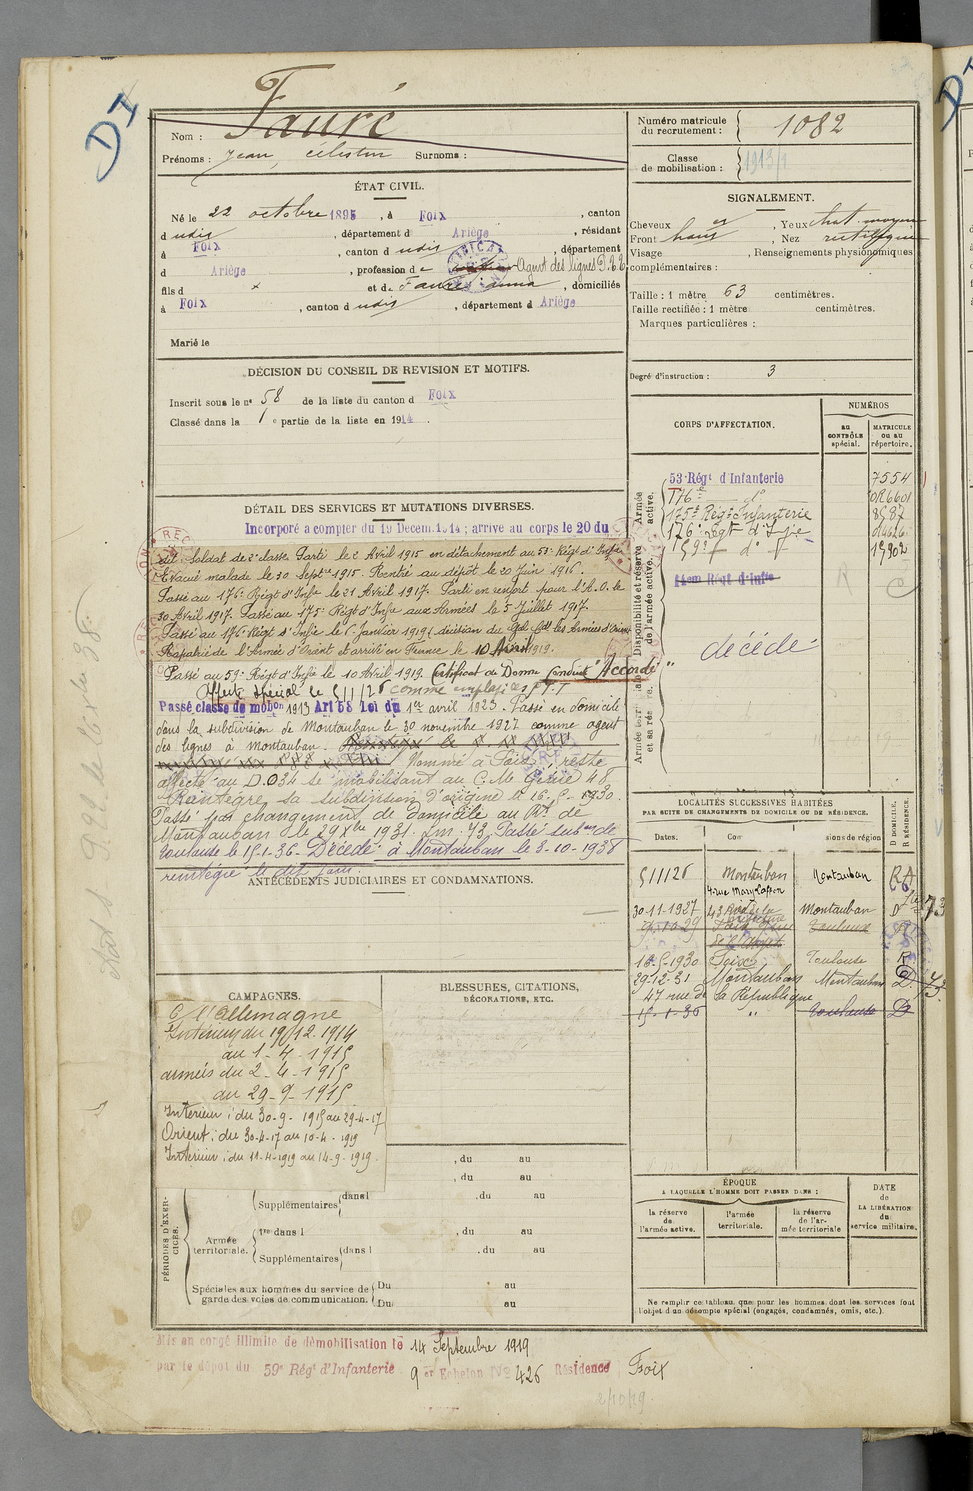 DI
Nom : Fauré
Prénoms : Jean, célestin Surnoms :
ÉTAT CIVIL.
Né le 22 octobre 1895, à Foix, canton
d udis, département d Ariège, résidant
à Foix, canton d udis, département
d Ariège, profession de Agent des lignes P.T.T.
fils d x et de Faurés anna, domiciliés
à Foix, canton d udis, département d Ariège
Marié le
DÉCISION DU CONSEIL DE REVISION ET MOTIFS.
Inscrit sous le no 58 de la liste du canton d Foix
Classé dans la 1e partie de la liste en 1914.
DÉTAIL DES SERVICES ET MUTATIONS DIVERSES.
Incorporé a compter du 19 Decem. 1914 ; arrivé au corps le 20 du
dit. Soldat de 2e classe. Parti le 2 Avril 1915 en détachement au 53e Régt d'Infie
Evacué malade le 30 Septre 1915. Rentré au dépôt le 20 Juin 1916.
Passé au 176e Régt d'Infie le 21 Avril 1917. Parti en renfort pour l'A.O. le
30 Avril 1917. Passé au 175e Régt d'Infie aux Armées le 5 Juillet 1917.
Passé au 176e Régt d'Infie le 6 Janvier 1919 (décision du Gal Cdt les Armées d'Orient
Rapatrié de l'Armée d'Orient et arrivé en France le 10 Avril 1919.
Passé au 59e Régt d'Infie le 10 Avril 1919. Certificat de Bonne Conduite "Accordé"
Affecté spécial le 5/1/26 comme employé des P.T.T
Passé classe de mobon 1913 Art 58 Loi du 1er avril 1923. Passé en domicile
dans la subdivision de Montauban le 30 novembre 1927 comme agent
des lignes à Montauban.
Nommé à Foix, reste
affecté au D.034 se mobilisant au C.M. Génie 48
Réintègre sa subdivision d'origine le 16-5-1930.
Passé par changement de domicile au Rt. de
Montauban le 29 Xbre 1931. Passé subon de
Toulouse le 15-1-36. Décédé à Montauban le 8-10-1938
réintégré le dit jour.
ANTÉCÉDENTS JUDICIAIRES ET CONDAMNATIONS.
CAMPAGNES.
C/ l'allemagne
Intérieur du 19/12-1914
au 1-4-1915
armées du 2-4-1915
au 29-9-1915
Intérieur : du 30-9-1915 au 29-4-17
Orient : du 30-4-17 au 10-4-1919
Intérieur : du 11-4-1919 au 14-9-1919.
BLESSURES, CITATIONS,
DÉCORATIONS, ETC.
PÉRIODES D'EXERCICES.
, du au
, du au
Supplémentaires (dans l , du au
Armée territoriale.
1re dans l , du au
Supplémentaires (dans l , du au
Spéciales aux hommes du service de
garde des voies de communication.
Du au
Du au
Mis en congé illimité de démobilisation le 14 Septembre 1919
par le dépôt du 59e Régt d'Infanterie 9er Echelon No 426 Résidence Foix
2/10/19
Numéro matricule
du recrutement : 1082
Classe
de mobilisation : 1913
SIGNALEMENT.
Cheveux , Yeux chat. moyen
Front haut , Nez rectiligne
Visage , Renseignements physionomiques
complémentaires :
Taille : 1 mètre 63 centimètres.
Taille rectifiée : 1 mètre centimètres.
Marques particulières :
Degré d'instruction : 3
CORPS D'AFFECTATION.
NUMÉROS
au
CONTRÔLE
spécial.
MATRICULE
ou au
répertoire.
Armée
active.
Disponibilité et réserve
de l'armée active.
et sa rés
53e Régt d'Infanterie 7554
176e do 016601
175e Rég. Infanterie 8587
176e Régt d'Infie
159e do 15902
14em Regt d'Infie
décédé
LOCALITÉS SUCCESSIVES HABITÉES
PAR SUITE DE CHANGEMENTS DE DOMICILE OU DE RÉSIDENCE.
Dates. Com sions de région
D DOMICILE.
R RÉSIDENCE.
5/1/26 Montauban Montauban
4 rue Marylafson
30-11-1927 Montauban D
Toulouse
16-5-1930 Foix Toulouse R
29-12-31 Montauban Montauban D
47 rue de la République
15-1-36 " Toulouse D
ÉPOQUE
A LAQUELLE L'HOMME DOIT PASSER DANS :
la réserve
de
l'armée active.
l'armée
territoriale.
la réserve
de l'ar-
mée territoriale
DATE
de
LA LIBÉRATION
du
service militaire.
Ne remplir ce tableau que pour les hommes dont les services font
l'objet d'un décompte spécial (engagés, condamnés, omis, etc.).